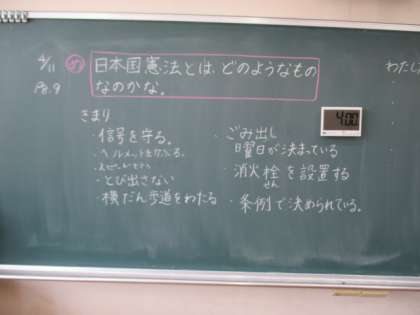 4/11
め 日本国憲法とは、どのようなもの
Pg.9
なのかな。
きまり
・信号を守る。
・ヘルメットをかぶる。
・とび出さない
・横だん歩道をわたる
・ごみ出し
曜日が決まっている
・消火栓を設置する
せん
・条例で決められている。
4:00
わたし